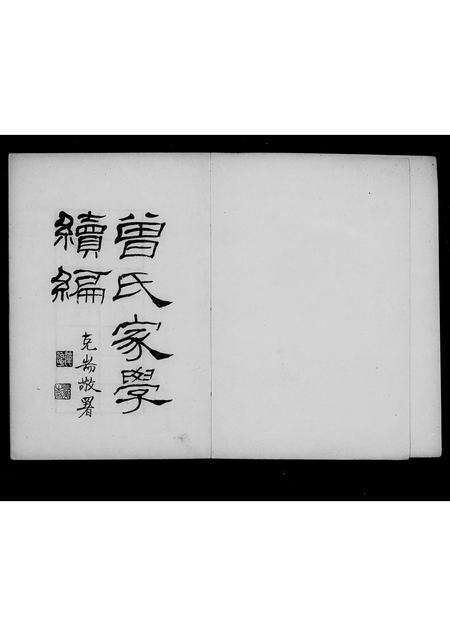 曾氏家學
續編
克耑敬署